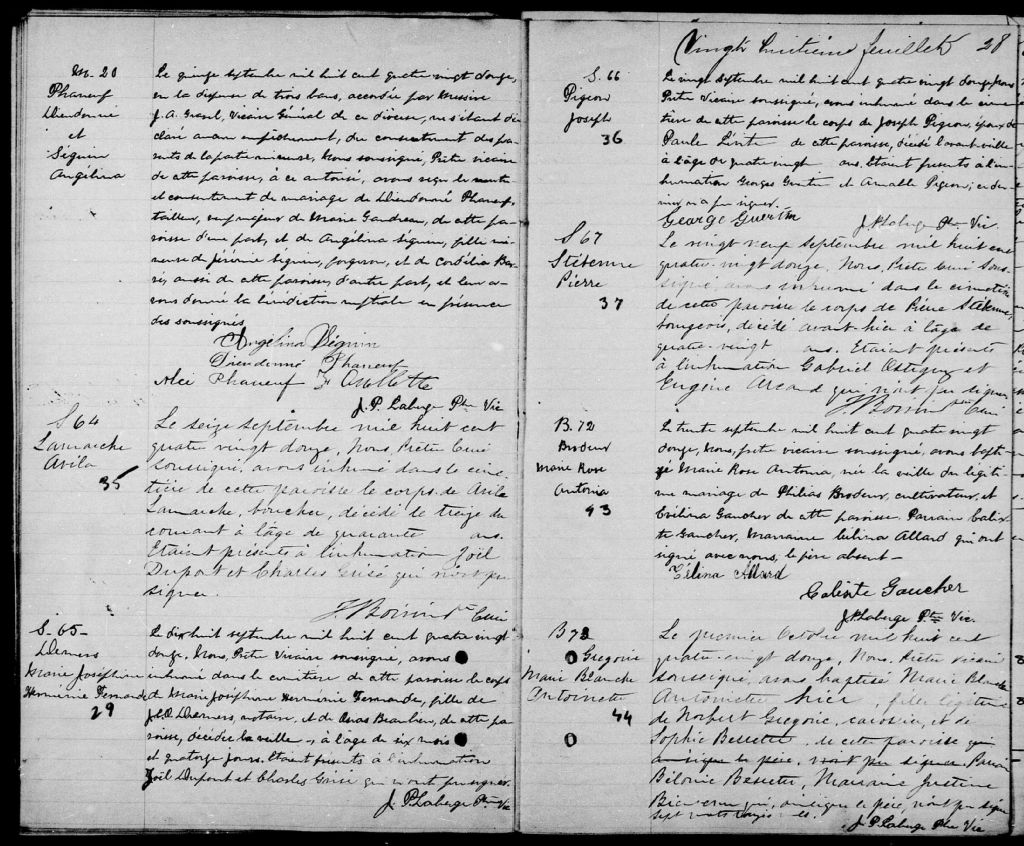 M. 20
Phaneuf
Dieudonné
et
Séguin
Angélina
Le quinze septembre mil huit cent quatre vingt douze,
vu la dispense de trois bans, accordée par Messire
J. A. Gravel, Vicaire Général de ce diocèse, ne s'étant dé
claré aucun empêchement, du consentement des pa
rents de la partie mineure, Nous soussigné, Prêtre vicaire
de cette paroisse, à ce autorisé, avons reçu le mutuel
consentement de mariage de Dieudonné Phaneuf,
tailleur, fils majeur de Marie Gaudreau, de cette pa
roisse d'une part, et de Angélina Séguin, fille mi
neure de Jérémie Séguin, forgeron, et de Cordélia
aussi de cette paroisse, d'autre part, et leur a
vons donné la bénédiction nuptiale en présence
des soussignés
Angélina Séguin
Dieudonné Phaneuf
Alci Phaneuf
J. P. Laberge Ptre Vic
S 64
Lamarche
Avila
35
Le seize septembre mil huit cent
quatre vingt douze, Nous, Prêtre Curé
soussigné, avons inhumé dans le cime
tière de cette paroisse le corps de Avila
Lamarche, boucher, décédé le treize du
courant à l'âge de quarante ans.
Etaient présents à l'inhumation Joël
Dupont et Charles Grisé qui n'ont pu
signer.
Ptre Curé
S. 65
Demers
Marie Joséphine
Herménie Fernande
29
Le dix huit septembre mil huit cent quatre vingt
douze, Nous, Prêtre Vicaire soussigné, avons
inhumé dans le cimetière de cette paroisse le corps
de Marie Joséphine Herménie Fernande, fille de
Demers, notaire, et de Beaulieu, de cette pa
roisse, décédée la veille, à l'âge de six mois
et quatorze jours. Etaient présents à l'inhumation
Joël Dupont et Charles Grisé qui n'ont pu signer.
J. P. Laberge Ptre Vic
Vingt huitième feuillet 28
S. 66
Pigeon
Joseph
36
Le vingt septembre mil huit cent quatre vingt douze, Nous
Prêtre Vicaire soussigné, avons inhumé dans le cime
tière de cette paroisse le corps de Joseph Pigeon, époux de
Paule de cette paroisse, décédé l'avant veille
à l'âge de quatre vingt ans. Etaient présents à l'in
humation Georges Guertin et Amable Pigeon; ce der
nier n'a pu signer.
George Guertin
J. P. Laberge Ptre Vic.
S 67
Stébenne
Pierre
37
Le vingt neuf septembre mil huit cent
quatre-vingt douze, Nous, Prêtre Curé sous-
signé, avons inhumé dans le cimetière
de cette paroisse le corps de Pierre Stébenne,
bourgeois, décédé avant hier à l'âge de
quatre-vingt ans. Etaient présents
à l'inhumation Gabriel Ostiguy et
Eugène Arcand qui n'ont pu signer
Ptre Curé
B. 72
Brodeur
Marie Rose
Antonia
43
Le trente septembre mil huit cent quatre vingt
douze, Nous, prêtre vicaire soussigné, avons bapti
sé Marie Rose Antonia, née la veille du légiti
me mariage de Philias Brodeur, cultivateur, et
Evelina Gaucher de cette paroisse. Parrain Calix
te Gaucher, Marraine Célina Allard qui ont
signé avec nous, le père absent
Célina Allard
Calixte Gaucher
J. P. Laberge Ptre Vic.
B 73
Grégoire
Marie Blanche
Antoinette
44
Le premier Octobre mil huit cent
quatre-vingt douze, Nous, Prêtre vicaire
soussigné, avons baptisé Marie Blanche
Antoinette née hier, fille légitime
de Norbert Grégoire, carossier, et de
Sophie Bessette, de cette paroisse qui
le père, n'ont pu signer. Parrain
Bélonie Bessette, Marraine Justine
Bienvenu qui, ainsi que le père, n'ont pu signer
sept mots rayés
J. P. Laberge Ptre Vic